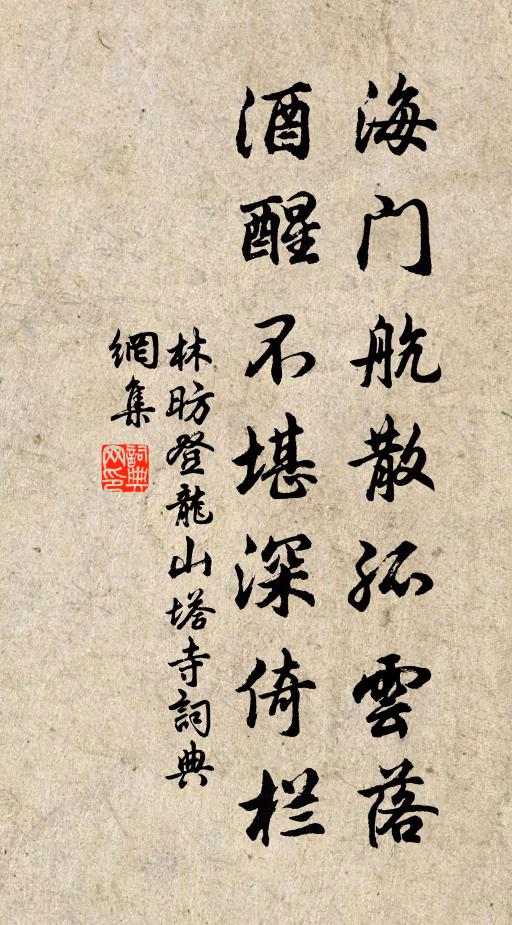 海门航散孤雲落
酒醒不堪深倚栏
林昉登龍山塔寺詞典
網集
詞典网印